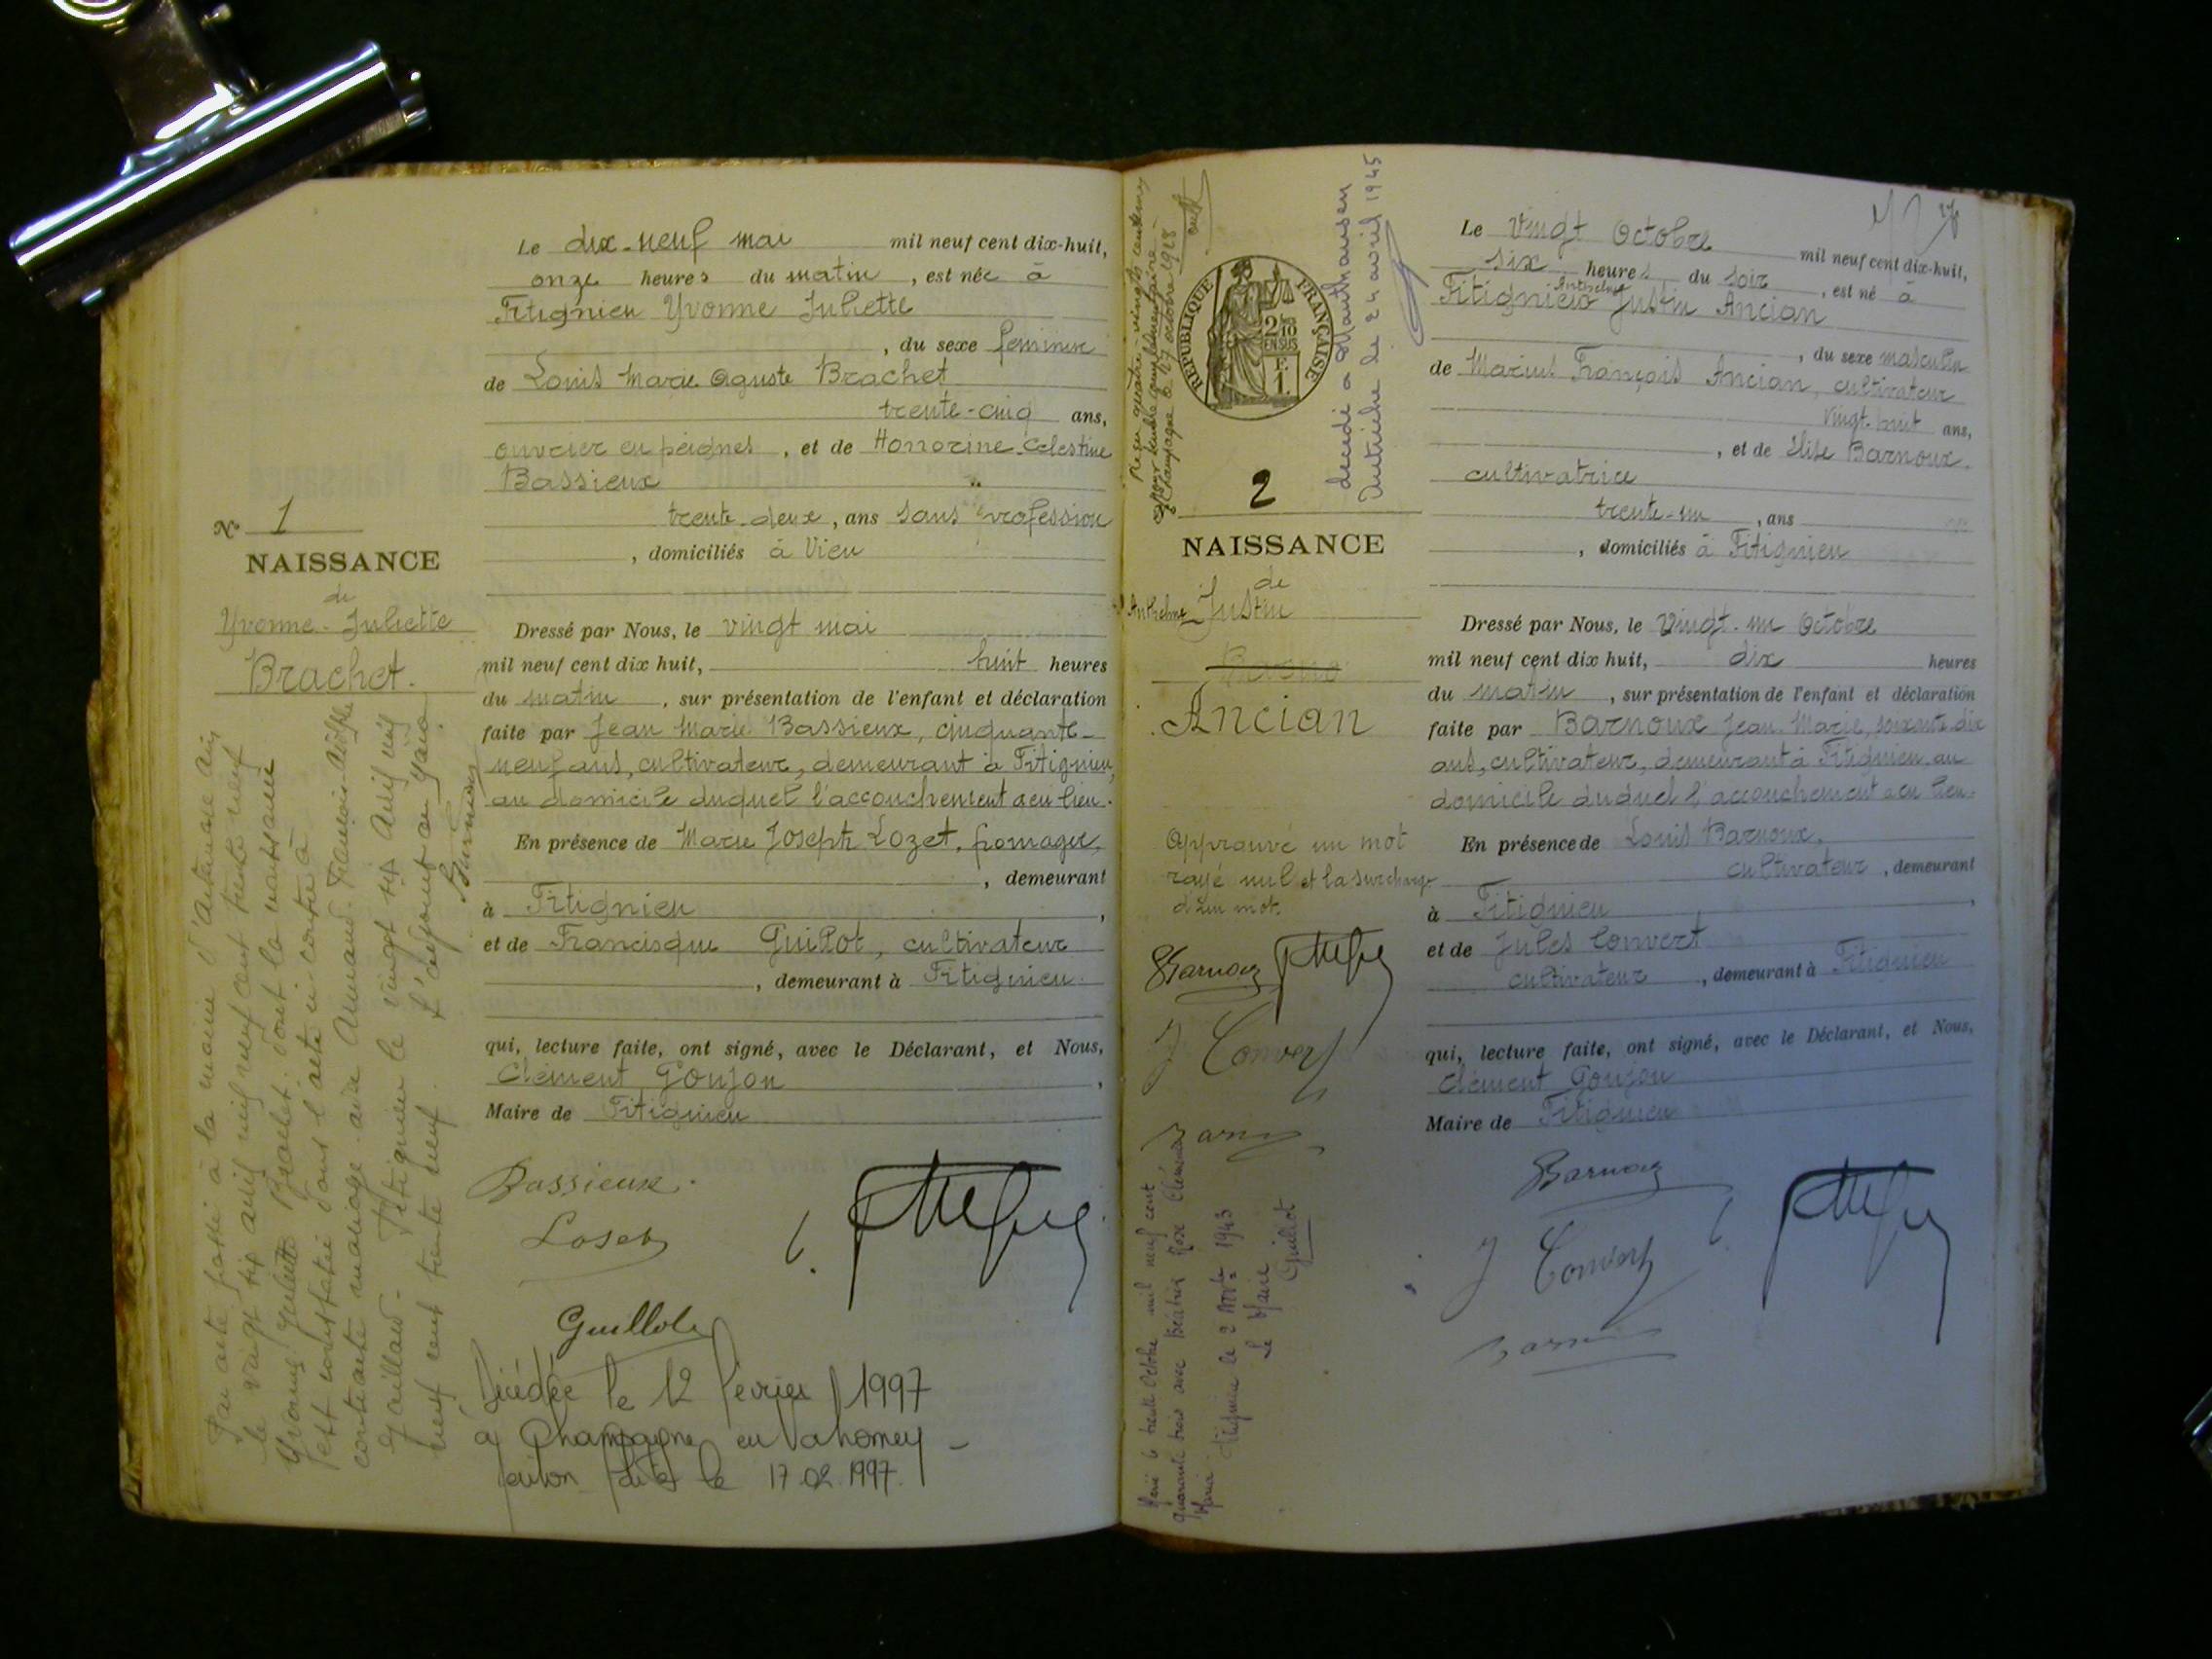 Le dix-neuf mai mil neuf cent dix-huit,
onze heures du matin, est née à
Fitignieu Yvonne Juliette
, du sexe féminin
de Louis Marie Oguste Brachet
trente-cinq ans,
ouvrier en peignes, et de Honorine Celestine
Bassieux
trente deux, ans sans profession
, domiciliés à Vieu
N° 1
NAISSANCE
de
Yvonne-Juliette
Brachet.
Dressé par Nous, le vingt mai
mil neuf cent dix huit, huit heures
du matin, sur présentation de l'enfant et déclaration
faite par Jean Marie Bassieux, cinquante-
neuf ans, cultivateur, demeurant à Fitignieu,
au domicile duquel l'accouchement a eu lieu.
En présence de Marie Joseph Lozet, fromager,
, demeurant
à Fitignieu,
et de Francisque Guillot, cultivateur
, demeurant à Fitignieu.
qui, lecture faite, ont signé, avec le Déclarant, et Nous,
Clément Goujon,
Maire de Fitignieu
Bassieux.
Loset
Guillot
Par acte passé à la mairie d'Artemare Ain
le vingt six avril mil neuf cent trente neuf
Yvonne Juliette Brachet. dont la naissance
est constatée dans l'acte ci-contre à
contracté mariage avec Armand François
Gaillard - Fitignieu le vingt six avril mil
neuf cent trente neuf. L'adjoint au Maire
Décédée le 12 février 1997
à Champagne en Valromey -
mention faite le 17.02.1997.
REPUBLIQUE FRANÇAISE
2/10 EN SUS
1 F.
Champagne le 27 octobre 1928
décédé à Mauthausen
Autriche le 24 avril 1945
2
NAISSANCE
de
Anthelme Justin
Ancian
Approuvé un mot
rayé nul et la surcharge
d'un mot.
Barnoux
J Convert
Marié le trente Octobre mil neuf cent
quarante trois avec Béatrix Rose Clémence
Maria. Fitignieu le 2 Nov 1943
Le Maire
Guillot
Le Vingt Octobre mil neuf cent dix-huit,
six heures du soir, est né à
Fitignieu Anthelme Justin Ancian
, du sexe masculin
de Marius François Ancian, cultivateur
vingt-huit ans,
, et de Elise Barnoux.
cultivatrice
trente-un, ans
, domiciliés à Fitignieu
Dressé par Nous, le Vingt-un Octobre
mil neuf cent dix huit, dix heures
du matin, sur présentation de l'enfant et déclaration
faite par Barnoux Jean-Marie, soixante dix
ans, cultivateur, demeurant à Fitignieu, au
domicile duquel l'accouchement a eu lieu.
En présence de Louis Barnoux,
cultivateur, demeurant
à Fitignieu,
et de Jules Convert
cultivateur, demeurant à Fitignieu
qui, lecture faite, ont signé, avec le Déclarant, et Nous,
Clément Goujon
Maire de Fitignieu
Barnoux
J Convert